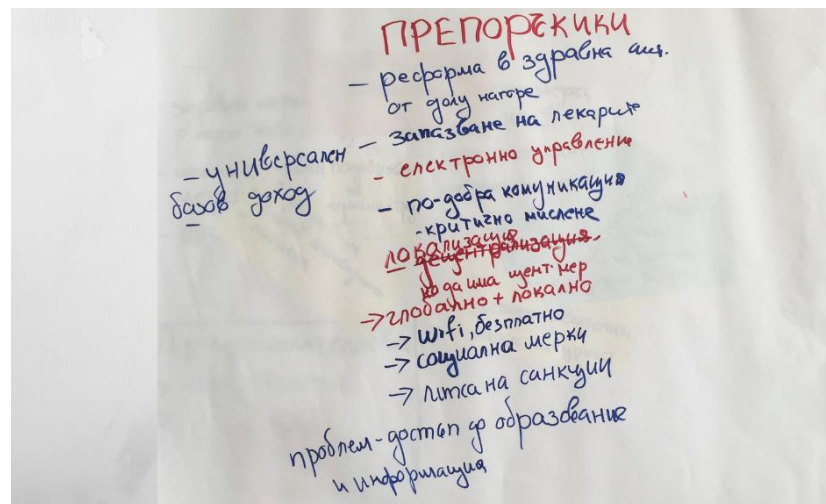 ПРЕПОРЪКИКИ
- ресформа в здравна
от долу нагоре
- запазване на лекарите
- универсален
базов доход
- електронно управление
- по-добра комуникация
- критично мислене
локализация
децентрализация
да има цент. мер
→ глобално + локално
→ Wifi, безплатно
→ социална мерки
→ липса на санкции
проблем - достъп до образование
и информация